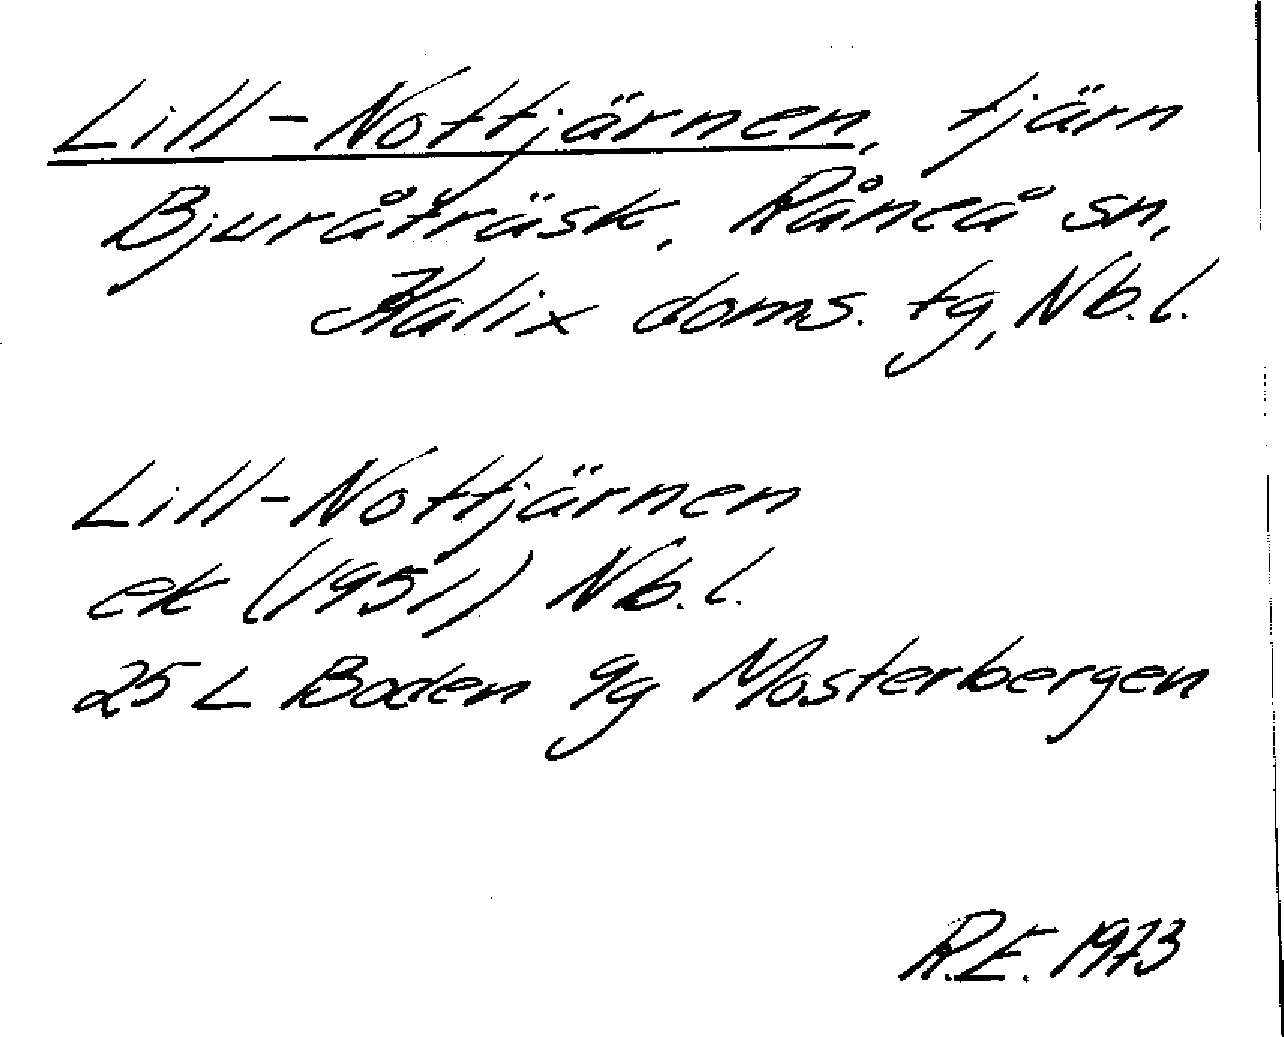 Lill-Nottjärnen, tjärn
Bjuråträsk, Råneå sn,
Kalix doms. tg, Nb.l.
Lill-Nottjärnen
ek (1951) Nb.l.
25 L Boden 9g Mosterbergen
R.E. 1973